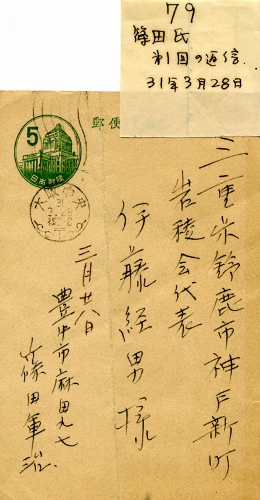 79
篠田氏
第1回の返信
31年3月28日
郵便
5
日本郵便
三重県鈴鹿市神戸新町
岩稜会代表
伊藤経男様
三月廿八日
豊中市麻田九七
篠田軍治